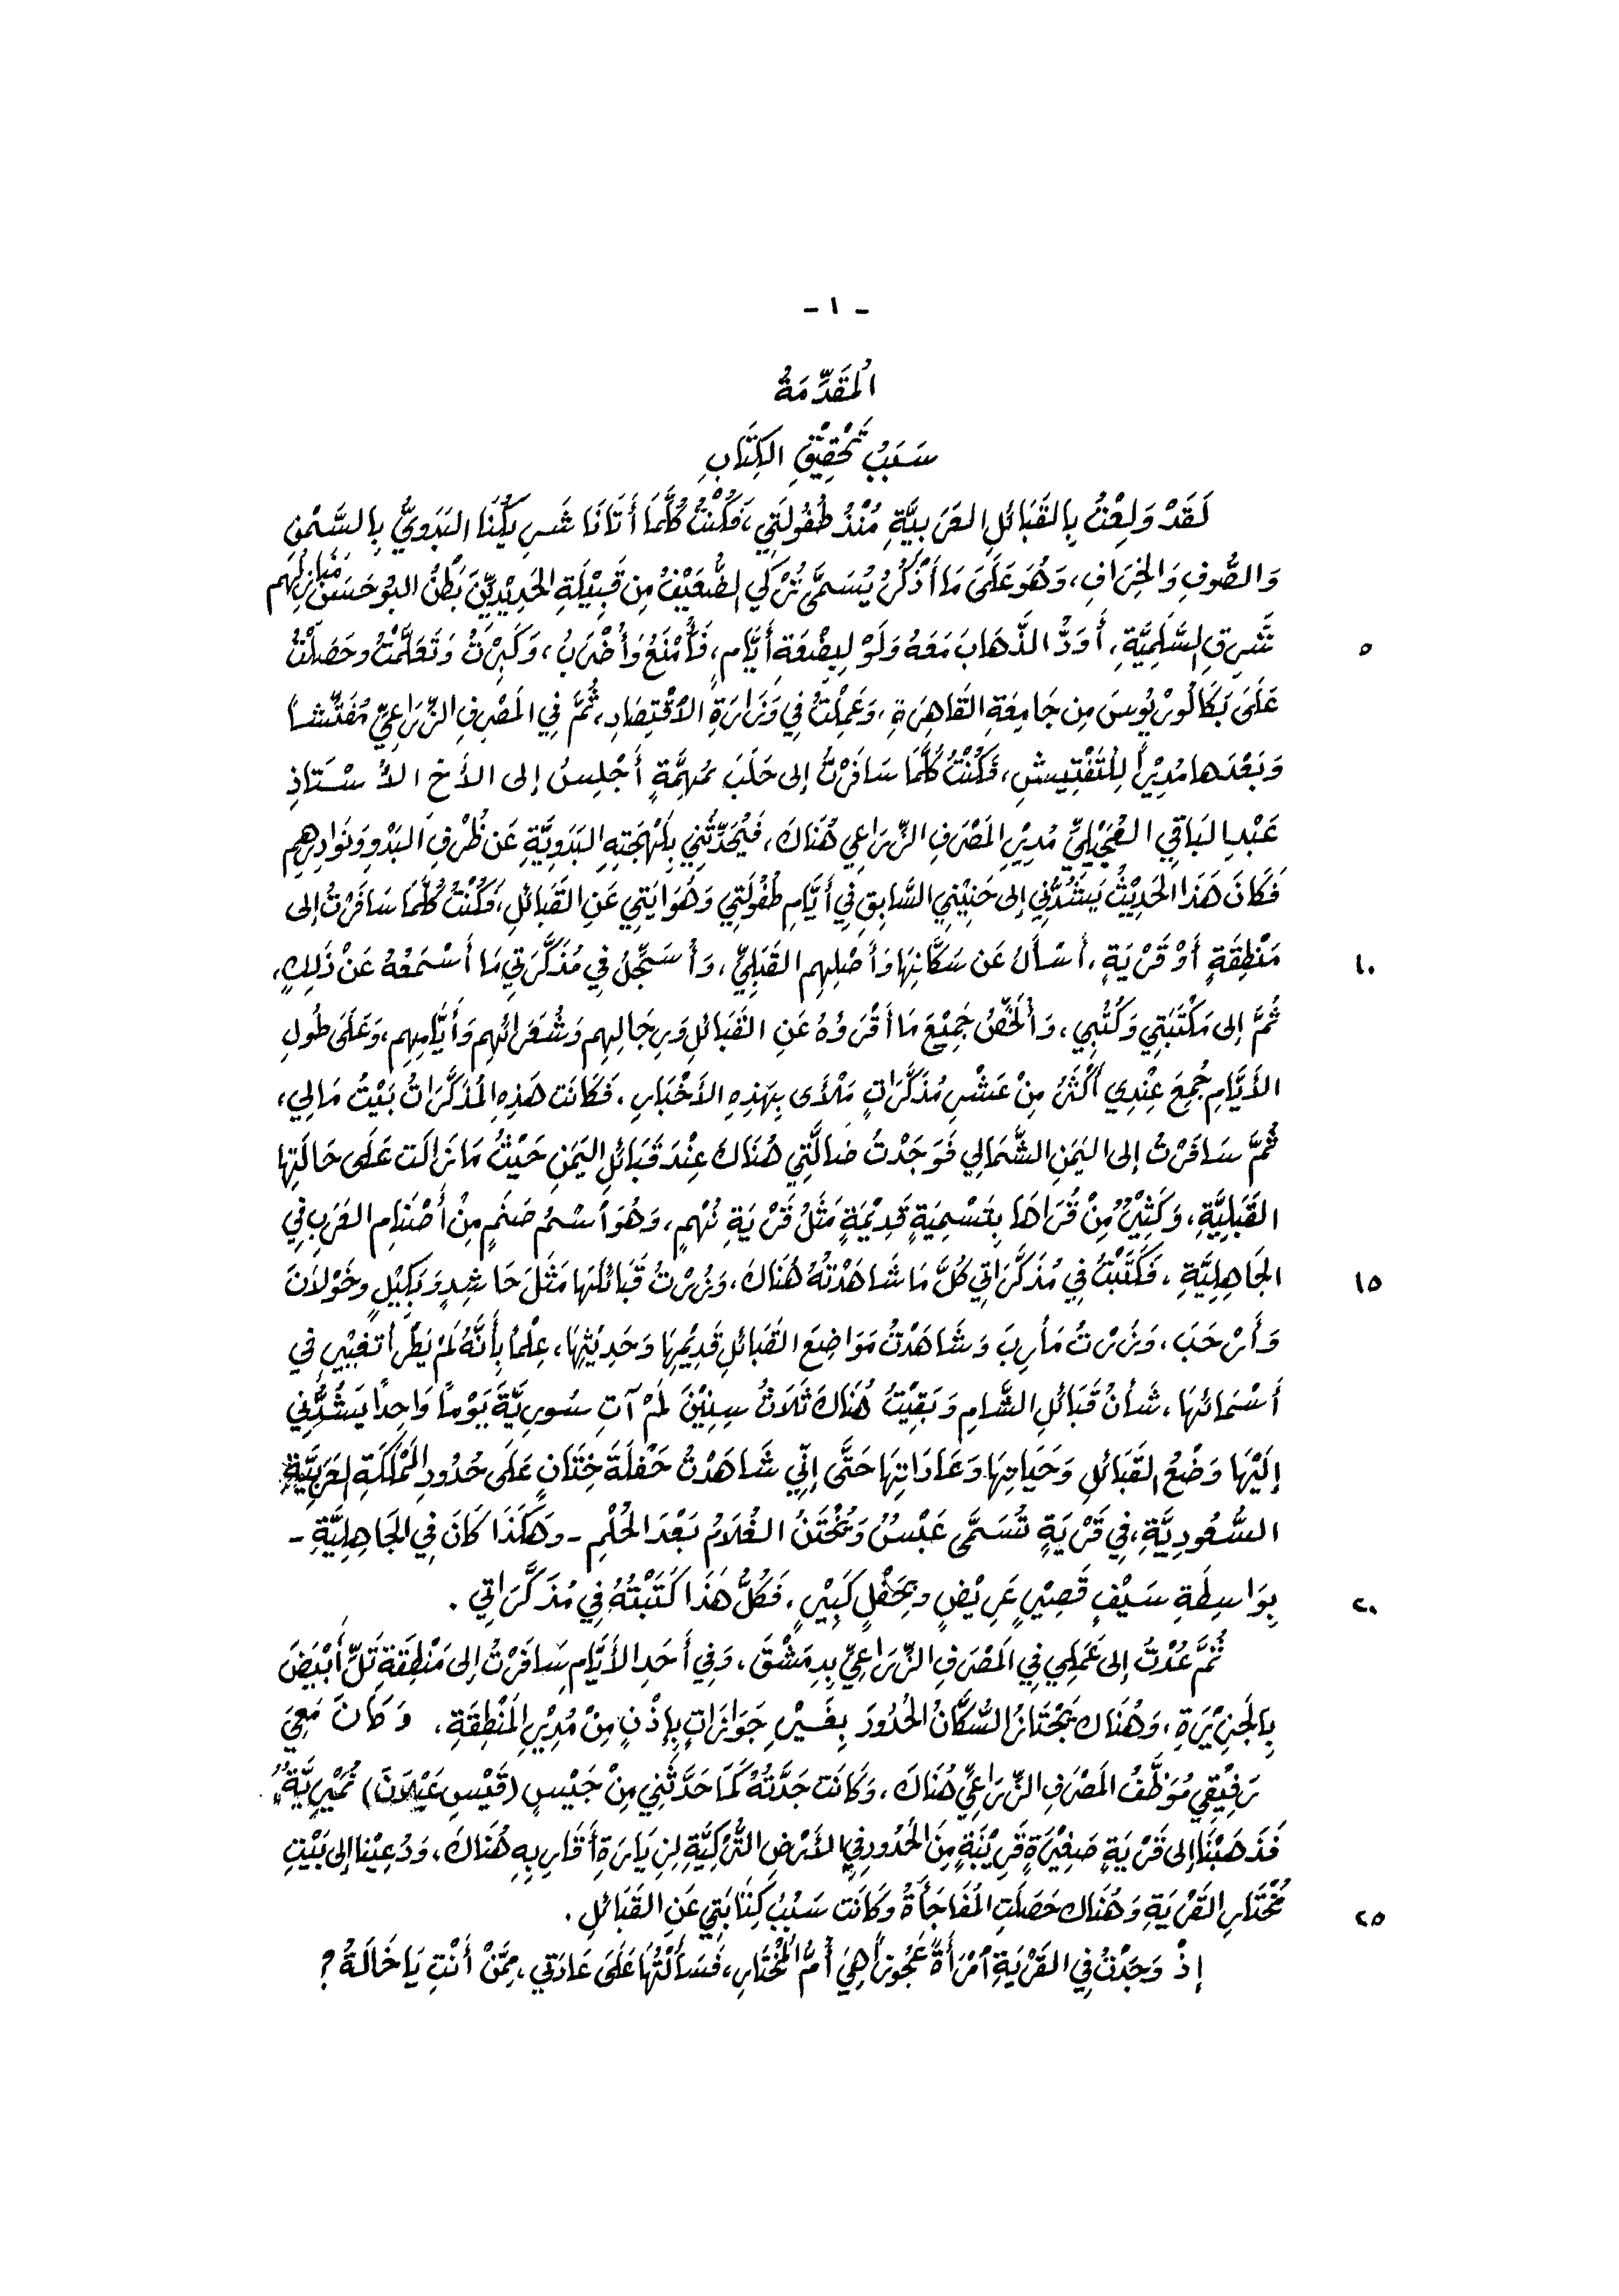 - ١ -
الْمُقَدِّمَةُ
سَبَبُ تَحْقِيْقِ الكِتَابِ
لَقَدْ وَلِعْتُ بِالقَبَائلِ العَرَبِيَّةِ مُنْذُ طُفُولَتِي، فَكُنْتُ كُلَّمَا أَتَانَا شَرِيكُنَا البَدَوِيُّ بِالسَّمْنِ
وَالصُّوفِ وَالخِرَافِ، وَهُوَ عَلَى مَا أَذْكُرُ يُسَمَّى تُرْكِي الضُّعَيِّفُ مِن قَبِيْلَةِ الحَدِيْدِيِّيْنَ بَطْنُ البُوحَسَن مَنَازِلُهم
٥ شَرقِ السَّلَمِيَّةِ، أَوَدُّ الذَّهَابَ مَعَهُ وَلَوْ لِبِضْعَةِ أَيَّامٍ، فَأُمْنَعُ وَأُضْرَبُ، وَكَبِرْتُ وَتَعَلَّمْتُ وحَصَلْتُ
عَلَى بَكَالُورْيُوسَ مِن جَامِعَةِ القَاهِرَةِ، وَعَمِلْتُ فِي وَزَارَةِ الاقْتِصَادِ، ثُمَّ فِي المَصْرِفِ الزِّرَاعِيِّ مُفَتِّشاً
وَبَعْدَها مُدِيْراً لِلتَفْتِيشِ، فَكُنْتُ كُلَّمَا سَافَرْتُ إلى حَلَبَ بمُهِمَّةٍ أَجْلِسُ إلى الأَخِ الأُسْتَاذِ
عَبْدِ البَاقِي العُجَيْلِيِّ مُدِيْرِ المَصْرَفِ الزِّرَاعِي هُنَاكَ، فَيُحَدِّثُنِي بِلَهْجَتِهِ البَدَوِيَّةِ عَن ظُرْفِ البَدْوِ وَنَوَادِرِهِم
فَكَانَ هَذَا الحَدِيْثُ يَشُدُّنِي إلى حَنِيْنِي السَّابِقِ فِي أَيَّامِ طُفُولَتِي وَهُوَايَتِي عَنِ القَبَائلِ، فَكُنْتُ كُلَّمَا سَافَرْتُ إلى
١٠ مَنْطِقَةٍ أَوْ قَرْيَةٍ، أسْأَلُ عَن سَكَّانِهَا وَأَصْلِهِم القَبَلِيِّ، وَأُسَجِّلُ فِي مُذَكَّرَتِي مَا أَسْمَعُهُ عَنْ ذَلِكَ،
ثُمَّ إلى مَكْتَبَتِي وَكُتُبِي، وَأُلَخِّصُ جَمِيْعَ مَا أقْرَؤهُ عَنِ القَبَائلِ وَرِجَالِهِم وَشُعَرَائهِم وَأَيَّامِهِم، وَعَلَى طُولِ
الأَيَّامِ جُمِعَ عِنْدِي أَكْثَرُ مِنْ عَشْرِ مُذَكَّرَاتٍ مَلْأَى بِهَذِهِ الأَخْبَارِ. فَكَانَت هَذِهِ المُذَكَّرَاتُ بَيْتُ مَالِي،
ثُمَّ سَافَرْتُ إلى اليَمَنِ الشَّمَالِي فَوَجَدْتُ ضالَّتِي هُنَاكَ عِنْدَ قَبَائلِ اليَمَنِ حَيْثُ مَا زَالَت عَلَى حَالَتِها
القَبَلِيَّةِ، وَكَثِيْرٌ مِنْ قُرَاهَا بِتَسْمِيَةٍ قَدِيْمَةٍ مَثَلُ قَرْيَةِ نُهْمٍ، وَهُوَ اسْمُ صَنَمٍ مِنْ أَصْنَامِ العَرَبِ فِي
١٥ الجَاهِلِيَّةِ، فَكَتَبْتُ فِي مُذَكَّرَاتِي كُلَّ مَا شَاهَدْتُهُ هُنَاكَ، وَزُرْتُ قَبَائلَهَا مَثَلَ حَاشِدٍ وَبَكِيْلٍ وخَوْلَانَ
وَأَرْحَبَ، وَزُرْتُ مَأْرِبَ وَشَاهَدْتُ مَوَاضِعَ القَبَائلِ قَدِيْمِهَا وَحَدِيْثِهَا، عِلْماً بِأَنَّهُ لَمْ يَطْرَأ تغْيِيْرٍ فِي
أَسْمَائهَا، شَأنُ قَبَائلِ الشَّامِ وَبَقِيْتُ هُنَاكَ ثَلَاثُ سِنِيْنَ لَمْ آتِ سُورِيَّةَ يَوْماً وَاحِداً يَشُدُّنِي
إلَيْهَا وَضْعُ القَبَائلِ وَحَيَاتِهَا وَعَادَاتِهَا حَتَّى إنِّي شَاهَدْتُ حَفْلَةَ خِتَانٍ عَلَى حُدُودِ المَمْلَكَةِ العَرَبِيَّةِ
السُّعُودِيَّةِ، فِي قَرْيَةٍ تُسَمَّى عَبْسُ وَيُخْتَنُ الغُلَامُ بَعْدَ الحُلْمِ - وَهَكَذَا كَانَ فِي الجَاهِلِيَّةِ -
٢٠ بِوَاسِطَةِ سَيْفٍ قَصِيْرٍ عَرِيْضٍ وبحَفْلٍ كَبِيْرٍ، فَكُلُّ هَذَا كَتَبْتُهُ فِي مُذَكَّرَاتِي.
ثُمَّ عُدْتُ إلى عَمَلِي فِي المَصْرَفِ الزِّرَاعِيِّ بِدِمَشْقَ، وَفِي أَحَدِ الأَيَّامِ سَافَرْتُ إلى مَنْطِقَةِ تَلِّ أَبْيَضَ
بِالجَزِيْرَةِ، وَهُنَاك يَجْتَازُ السُّكَّانُ الحُدُودَ بِغَيْرِ جَوَازَاتٍ بِإذْنٍ مِنْ مُدِيْرِ المَنْطِقَةِ، وَكَانَ مَعِيَ
رَفِيْقِي مُوَظَّفُ المَصْرَفِ الزِّرَاعِيِّ هُنَاكَ، وَكَانَت جَدَّتُهُ كَمَا حَدَّثَنِي مِنْ جَيْسٍ (قَيْسِ عَيْلَانَ) نُمَيْرِيَّةٌ،
فَذَهَبْنَا إلى قَرْيَةٍ صَغِيْرَةٍ قَرِيْبَةٍ مِنَ الحُدُودِ فِي الأَرْضِ التُّرْكِيَّةِ لِزِيَارَةِ أَقَارِبِهِ هُنَاكَ، وَدُعِيْنا إلى بَيْتِ
٢٥ مُخْتَارِ القَرْيَةِ وَهُنَاك حَصَلَتِ المُفَاجَأَةُ وَكَانَت سَبَبُ كِتَابَتِي عَنِ القَبَائلِ.
إذْ وَجَدْتُ فِي القَرْيَةِ امْرَأَةً عَجُوزاً هِيَ أُمُّ المُخْتَارِ، فَسَأَلْتُهَا عَلَى عَادَتِي، مِمَّنْ أَنْتِ يَا خَالَةُ؟